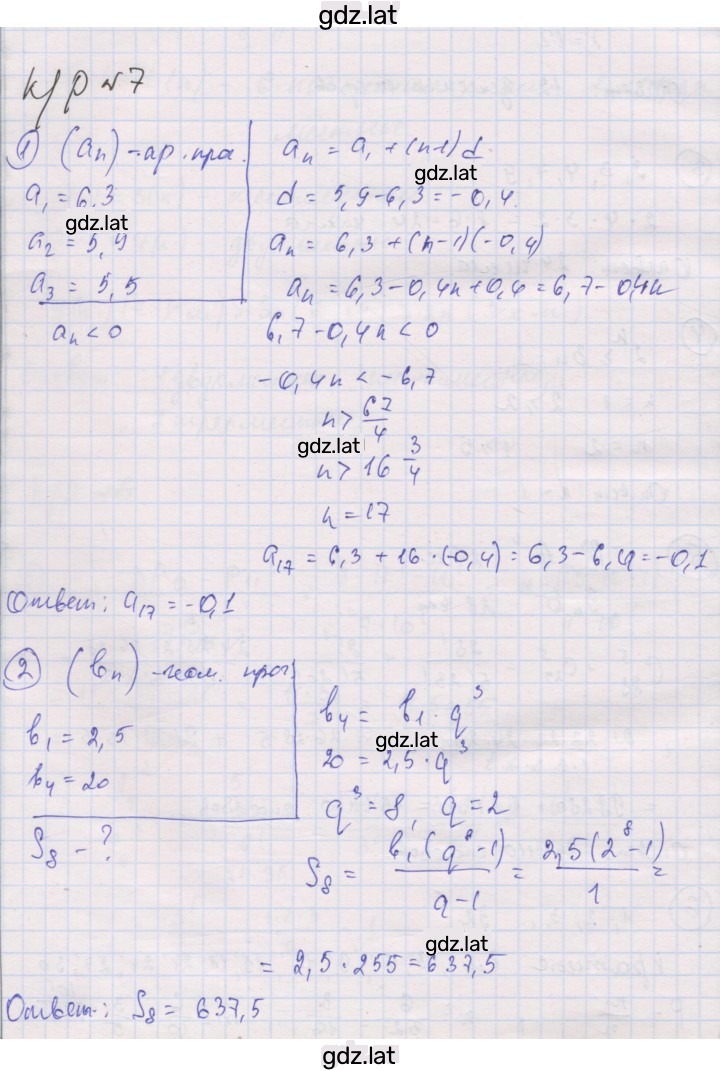 gdz.lat
к/р №7
① (aₙ) - ар. прог.
a₁ = 6,3
gdz.lat
a₂ = 5,9
a₃ = 5,5
aₙ < 0
aₙ = a₁ + (n-1)d
gdz.lat
d = 5,9 - 6,3 = -0,4
aₙ = 6,3 + (n-1)(-0,4)
aₙ = 6,3 - 0,4n + 0,4 = 6,7 - 0,4n
6,7 - 0,4n < 0
-0,4n < -6,7
n > 67/4
gdz.lat
n > 16 3/4
n = 17
a₁₇ = 6,3 + 16 · (-0,4) = 6,3 - 6,4 = -0,1
Ответ: a₁₇ = -0,1
② (bₙ) - геом. прог.
b₁ = 2,5
b₄ = 20
S₈ - ?
b₄ = b₁ · q³
gdz.lat
20 = 2,5 · q³
q³ = 8, q = 2
S₈ = b₁(q⁸ - 1)/(q - 1) = 2,5(2⁸ - 1)/1 =
gdz.lat
= 2,5 · 255 = 637,5
Ответ: S₈ = 637,5
gdz.lat